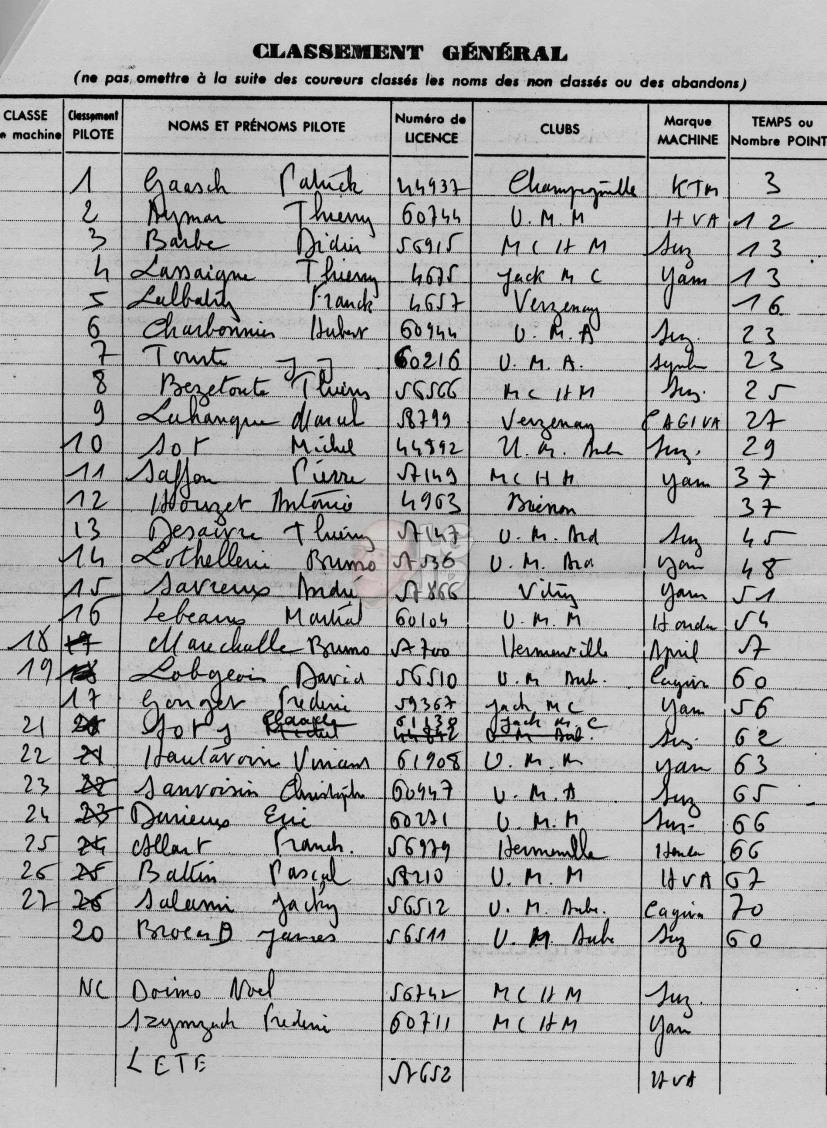 CLASSEMENT GÉNÉRAL
(ne pas omettre à la suite des coureurs classés les noms des non classés ou des abandons)
CLASSE machine Classement PILOTE NOMS ET PRÉNOMS PILOTE Numéro de LICENCE CLUBS Marque MACHINE TEMPS ou Nombre POINT
1 Gaasch Patrick 44937 KTM 3
2 Aymar Thierry 60744 U.M.M HVA 12
3 Barbe Didier 56915 M C H M Suz 13
4 Lassaigne Thierry 4675 Jack M C Yam 13
5 Franck 4657 Verzenay 16
6 Charbonnier Hubert 60944 U.M.A Suz. 23
7 Tourte J J 60216 U.M.A. 23
8 Bezetoute Thierry 56566 M C H M Suz. 25
9 Marcel 58799 Verzenay CAGIVA 27
10 Sot Michel 44892 U.M. Aube Suz. 29
11 Saffon Pierre 57149 M C H M Yam 37
12 Houzet Antonio 4963 Brienon 37
13 Desaivre Thierry 57147 U.M. Ard Suz 45
14 Bruno 57536 U.M. Ard Yam 48
15 Savreux André 57866 Vitry Yam 51
16 Lebeaux Martial 60104 U.M.M Honda 54
18 17 Marechalle Bruno 57700 Hermonville April 57
19 18 Lobgeois David 56510 U.M Aube. Cagiva 60
17 Gonget Frederic 59367 Jack MC Yam 56
21 20 61138 Jack M.C Suz. 62
22 21 Hautavoine Vincent 61908 U.M.M Yam 63
23 22 Sanvoisin Christophe 60947 U.M.A Suz 65
24 23 Durieux Eric 60271 U.M.M Suz- 66
25 24 Allart Franck. 56979 Hermonville Honda 66
26 25 Battin Pascal 58210 U.M.M HVA 67
27 26 Salami Jacky 56512 U.M. Aube. Cagiva 70
20 James 56511 U.M. Aube Suz 60
NC Doimo Noel 56742 M C H M Suz.
Frederic 60711 M C H M Yam
LETE 57652 HVA